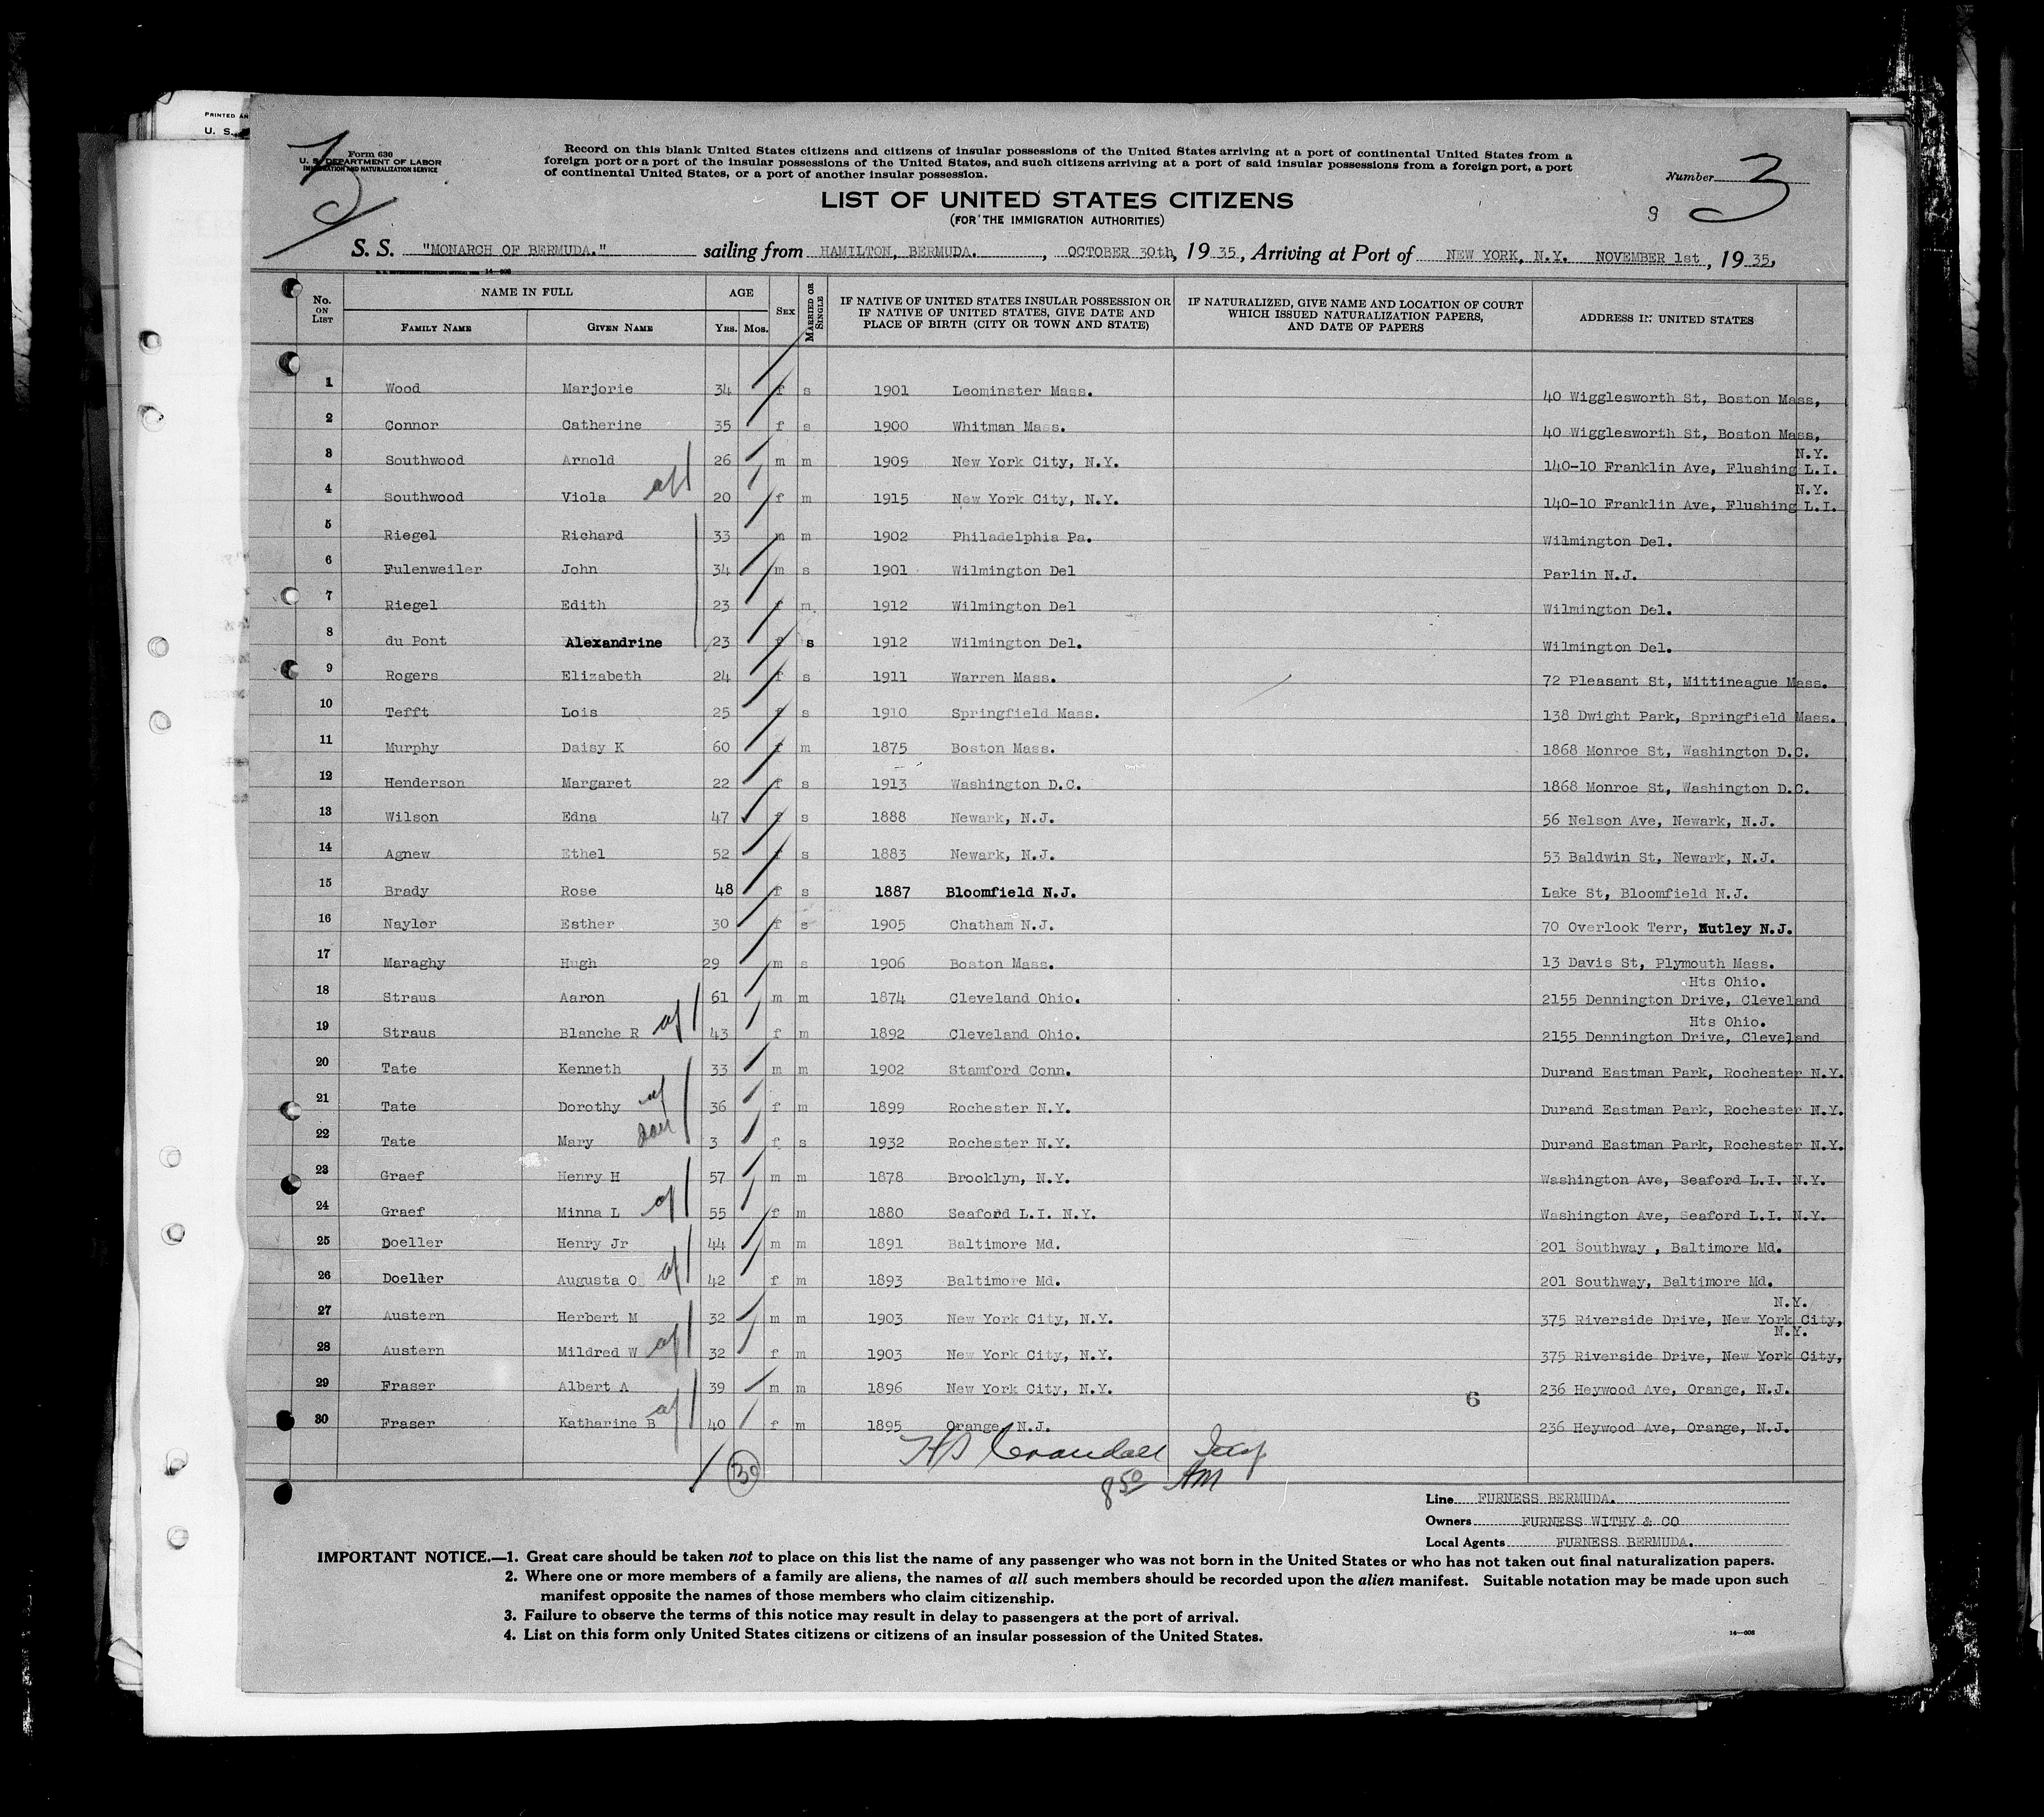 PRINTED AN
U. S.
Form 630
U. S. DEPARTMENT OF LABOR
IMMIGRATION AND NATURALIZATION SERVICE
Record on this blank United States citizens and citizens of insular possessions of the United States arriving at a port of continental United States from a
foreign port or a port of the insular possessions of the United States, and such citizens arriving at a port of said insular possessions from a foreign port, a port
of continental United States, or a port of another insular possession.
Number 3
LIST OF UNITED STATES CITIZENS
(FOR THE IMMIGRATION AUTHORITIES)
9
S. S. "MONARCH OF BERMUDA." sailing from HAMILTON, BERMUDA. , OCTOBER 30th, 1935, Arriving at Port of NEW YORK, N.Y. NOVEMBER 1st, 1935,
No. ON LIST NAME IN FULL AGE SEX MARRIED OR SINGLE IF NATIVE OF UNITED STATES INSULAR POSSESSION OR IF NATIVE OF UNITED STATES, GIVE DATE AND PLACE OF BIRTH (CITY OR TOWN AND STATE) IF NATURALIZED, GIVE NAME AND LOCATION OF COURT WHICH ISSUED NATURALIZATION PAPERS, AND DATE OF PAPERS ADDRESS IN UNITED STATES
FAMILY NAME GIVEN NAME YRS. MOS.
1 Wood Marjorie 34 f s 1901 Leominster Mass. 40 Wigglesworth St, Boston Mass,
2 Connor Catherine 35 f s 1900 Whitman Mass. 40 Wigglesworth St, Boston Mass,
3 Southwood Arnold 26 m m 1909 New York City, N.Y. 140-10 Franklin Ave, Flushing L.I. N.Y.
4 Southwood Viola 20 f m 1915 New York City, N.Y. 140-10 Franklin Ave, Flushing L.I. N.Y.
5 Riegel Richard 33 m m 1902 Philadelphia Pa. Wilmington Del.
6 Fulenweiler John 34 m s 1901 Wilmington Del Parlin N.J.
7 Riegel Edith 23 f m. 1912 Wilmington Del Wilmington Del.
8 du Pont Alexandrine 23 f s 1912 Wilmington Del. Wilmington Del.
9 Rogers Elizabeth 24 f s 1911 Warren Mass. 72 Pleasant St, Mittineague Mass.
10 Tefft Lois 25 f s 1910 Springfield Mass. 138 Dwight Park, Springfield Mass.
11 Murphy Daisy K 60 f m 1875 Boston Mass. 1868 Monroe St, Washington D.C.
12 Henderson Margaret 22 f s 1913 Washington D.C. 1868 Monroe St, Washington D.C.
13 Wilson Edna 47 f s 1888 Newark, N.J. 56 Nelson Ave, Newark, N.J.
14 Agnew Ethel 52 f s 1883 Newark, N.J. 53 Baldwin St, Newark, N.J.
15 Brady Rose 48 f s 1887 Bloomfield N.J. Lake St, Bloomfield N.J.
16 Naylor Esther 30 f s 1905 Chatham N.J. 70 Overlook Terr, Nutley N.J.
17 Maraghy Hugh 29 m s 1906 Boston Mass. 13 Davis St, Plymouth Mass.
18 Straus Aaron 61 m m 1874 Cleveland Ohio. 2155 Dennington Drive, Cleveland Hts Ohio.
19 Straus Blanche R 43 f m 1892 Cleveland Ohio. 2155 Dennington Drive, Cleveland Hts Ohio.
20 Tate Kenneth 33 m m 1902 Stamford Conn. Durand Eastman Park, Rochester N.Y.
21 Tate Dorothy 36 f m 1899 Rochester N.Y. Durand Eastman Park, Rochester N.Y.
22 Tate Mary dau 3 f s 1932 Rochester N.Y. Durand Eastman Park, Rochester N.Y.
23 Graef Henry H 57 m m 1878 Brooklyn, N.Y. Washington Ave, Seaford L.I. N.Y.
24 Graef Minna L 55 f m 1880 Seaford L.I. N.Y. Washington Ave, Seaford L.I. N.Y.
25 Doeller Henry Jr 44 m m 1891 Baltimore Md. 201 Southway , Baltimore Md.
26 Doeller Augusta O 42 f m 1893 Baltimore Md. 201 Southway, Baltimore Md.
27 Austern Herbert M 32 m m 1903 New York City, N.Y. 375 Riverside Drive, New York City, N.Y.
28 Austern Mildred W 32 f m 1903 New York City, N.Y. 375 Riverside Drive, New York City, N.Y.
29 Fraser Albert A 39 m m 1896 New York City, N.Y. 236 Heywood Ave, Orange, N.J.
6
30 Fraser Katharine B 40 f m 1895 Orange, N.J. 236 Heywood Ave, Orange, N.J.
30 H Crandall Insp
8 50 AM
Line FURNESS BERMUDA.
Owners FURNESS WITHY & CO
Local Agents FURNESS BERMUDA.
IMPORTANT NOTICE.—1. Great care should be taken not to place on this list the name of any passenger who was not born in the United States or who has not taken out final naturalization papers.
2. Where one or more members of a family are aliens, the names of all such members should be recorded upon the alien manifest. Suitable notation may be made upon such
manifest opposite the names of those members who claim citizenship.
3. Failure to observe the terms of this notice may result in delay to passengers at the port of arrival.
4. List on this form only United States citizens or citizens of an insular possession of the United States.
14—608